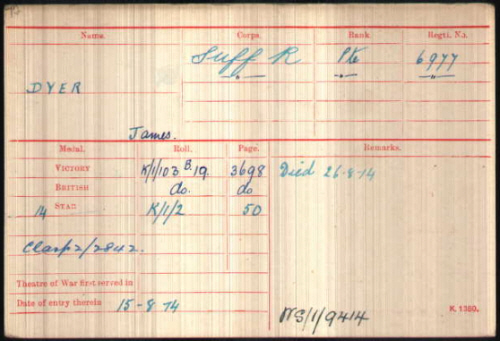 Name. Corps. Rank. Regtl. No.
DYER Suff R Pte 6977
James.
Medal. Roll. Page. Remarks.
VICTORY K/1/103 B.19 3698 Died 26-8-14
BRITISH do. do
14 STAR K/1/2 50
Clasp 2/2842.
Theatre of War first served in
Date of entry therein 15-8-14
NS/1/9414
K. 1380.